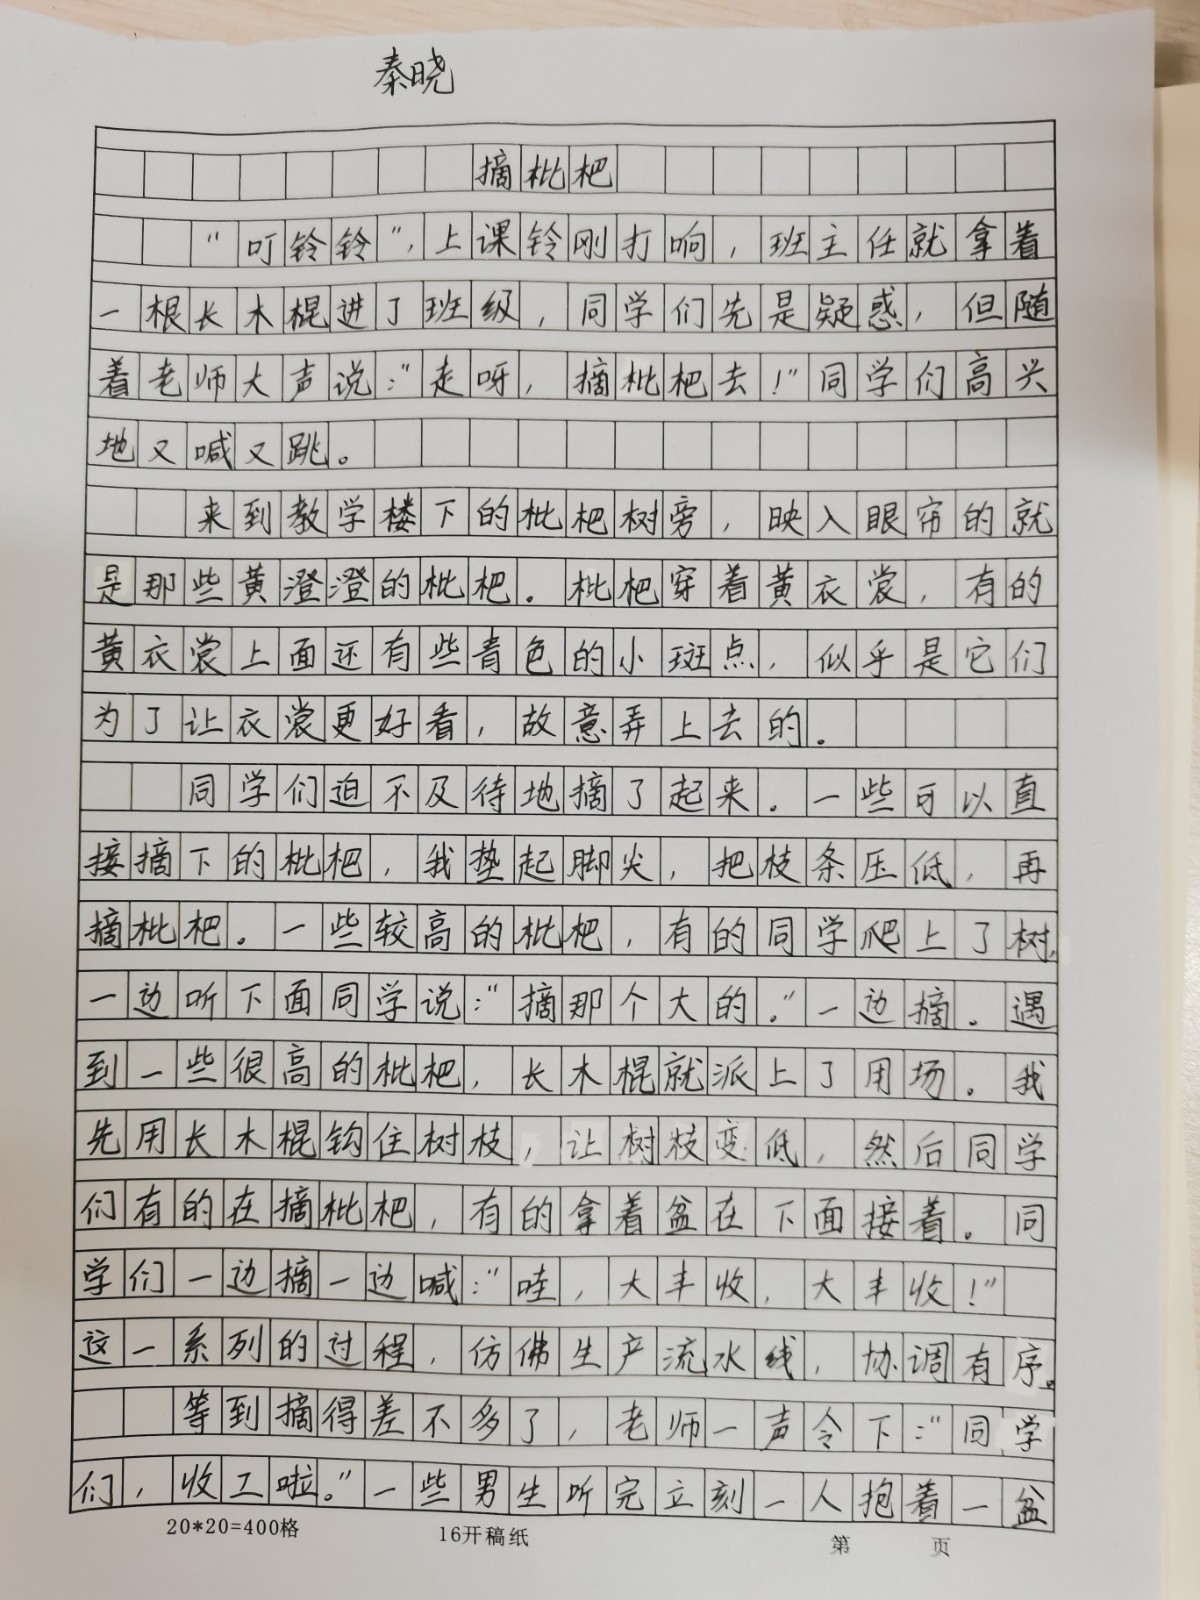 秦晓
摘枇杷
“叮铃铃”,上课铃刚打响，班主任就拿着
一根长木棍进了班级，同学们先是疑惑，但随
着老师大声说：“走呀，摘枇杷去！”同学们高兴
地又喊又跳。
来到教学楼下的枇杷树旁，映入眼帘的就
是那些黄澄澄的枇杷。枇杷穿着黄衣裳，有的
黄衣裳上面还有些青色的小斑点，似乎是它们
为了让衣裳更好看，故意弄上去的。
同学们迫不及待地摘了起来。一些可以直
接摘下的枇杷，我垫起脚尖，把枝条压低，再
摘枇杷。一些较高的枇杷，有的同学爬上了树，
一边听下面同学说：“摘那个大的。”一边摘。遇
到一些很高的枇杷，长木棍就派上了用场。我
先用长木棍钩住树枝，让树枝变低，然后同学
们有的在摘枇杷，有的拿着盆在下面接着。同
学们一边摘一边喊：“哇，大丰收，大丰收！”
这一系列的过程，仿佛生产流水线，协调有序。
等到摘得差不多了，老师一声令下：“同学
们，收工啦。”一些男生听完立刻一人抱着一盆
20*20=400格 16开稿纸 第 页